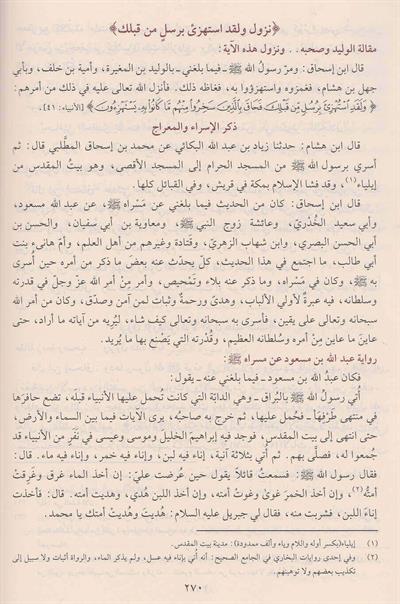 ﴿نزول ولقد استهزئ برسلٍ من قبلك﴾
مقالة الوليد وصحبه.. ونزول هذه الآية:
قال ابن إسحاق: ومرّ رسولُ الله ﷺ ـ فيما بلغني ـ بالوليد بن المغيرة، وأمية بن خلف، وبأبي
جهل بن هشام، فغمزوه واستهزؤوا به، فغاظه ذلك. فأنزل الله تعالى عليه في ذلك من أمرهم:
﴿وَلَقَدِ ٱسْتُهْزِئَ بِرُسُلٍ مِّن قَبْلِكَ فَحَاقَ بِٱلَّذِينَ سَخِرُوا۟ مِنْهُم مَّا كَانُوا۟ بِهِۦ يَسْتَهْزِءُونَ﴾ [الأنبياء: ٤١].
ذكر الإسراء والمعراج
قال ابن هشام: حدثنا زياد بن عبد الله البكائي عن محمد بن إسحاق المطَّلبي قال: ثم
أسري برسول الله ﷺ من المسجد الحرام إلى المسجد الأقصى، وهو بيتُ المقدس من
إيلياء(١)، وقد فشا الإسلام بمكة في قريش، وفي القبائل كلها.
قال ابن إسحاق: كان من الحديث فيما بلغني عن مَسْراه ﷺ، عن عبد الله مسعود،
وأبي سعيد الخُدْريّ، وعائشة زوج النبي ﷺ، ومعاوية بن أبي سفيان، والحسن بن
أبي الحسن البصري، وابن شهاب الزهريّ، وقتادة وغيرهم من أهل العلم، وأمّ هانىء بنت
أبي طالب، ما اجتمع في هذا الحديث، كلّ يحدّث عنه بعضَ ما ذكر من أمره حين أسرى
به ﷺ، وكان في مَسْراه، وما ذكر عنه بلاء وتَمْحيص، وأمر مِنْ أمر الله عزّ وجلّ في قدرته
وسلطانه، فيه عبرةٌ لأولي الألباب، وهدىً ورحمةٌ وثبات لمن آمن وصدّق، وكان من أمر الله
سبحانه وتعالى على يقين، فأسرى به سبحانه وتعالى كيف شاء، ليُرِيه من آياته ما أراد، حتى
عايَن ما عاين مِنْ أمره وسلطانه العظيم، وقُدْرته التي يَصْنع بها ما يُريد.
رواية عبد الله بن مسعود عن مسراه ﷺ:
فكان عبدُ الله بن مسعود ـ فيما بلغني عنه ـ يقول:
أُتي رسول الله ﷺ بالبُراق ـ وهي الدابّة التي كانت تُحمل عليها الأنبياء قبله، تضع حافرَها
في منتهى طَرْفها ـ فحُمل عليها، ثم خرج به صاحبُه، يرى الآيات فيما بين السماء والأرض،
حتى انتهى إلى بيت المقدس، فوجد فيه إبراهيمَ الخليلَ وموسى وعيسى في نَفَرٍ من الأنبياء قد
جُمعوا له، فصلّى بهم. ثم أُتي بثلاثة آنية، إناء فيه لبن، وإناء فيه خمر، وإناء فيه ماء. قال:
فقال رسول الله ﷺ: فسَمعتُ قائلاً يقول حين عُرضت عليّ: إن أخذ الماءَ غرق وغَرِقتْ
أمتُه(٢)، وإن أخذ الخمرَ غوى وغوتْ أمته، وإن أخذ اللبن هُدي، وهديت أمته. قال: فأخذت
إناءَ اللبن، فشربت منه، فقال لي جبريل عليه السلام: هُديتَ وهُديتْ أمتك يا محمد.
(١) إيلياء(بكسر أوله واللام وياء وألف ممدودة): مدينة بيت المقدس.
(٢) وفي إحدى روايات البخاري في الجامع الصحيح: أنه أتي بإناء فيه عسل، ولم يذكر الماء، والرواة أثبات ولا سبيل إلى
تكذيب بعضهم ولا توهينهم.
٢٧٠